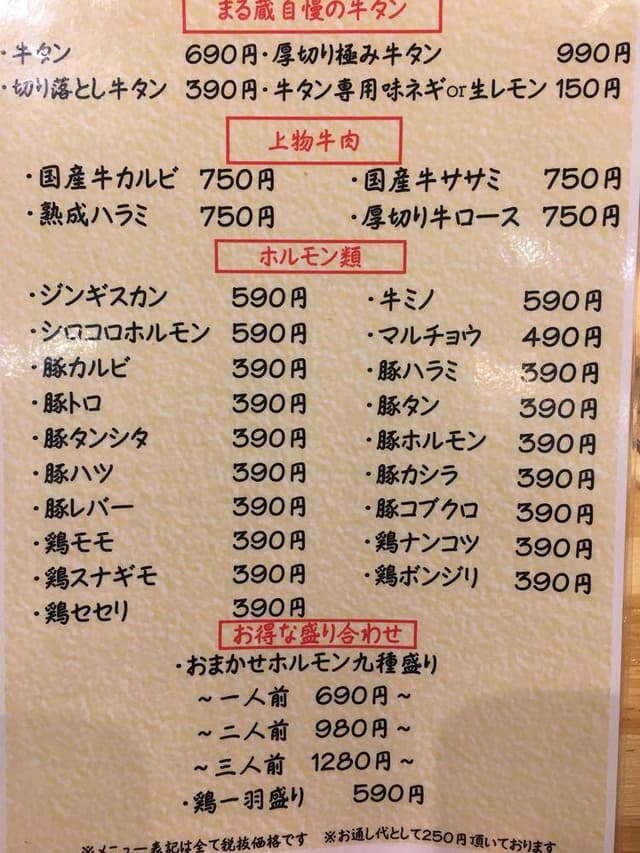 まる蔵自慢の牛タン
・牛タン 690円・厚切り極み牛タン 990円
・切り落とし牛タン 390円・牛タン専用味ネギor生レモン 150円
上物牛肉
・国産牛カルビ 750円 ・国産牛ササミ 750円
・熟成ハラミ 750円 ・厚切り牛ロース 750円
ホルモン類
・ジンギスカン 590円 ・牛ミノ 590円
・シロコロホルモン 590円 ・マルチョウ 490円
・豚カルビ 390円 ・豚ハラミ 390円
・豚トロ 390円 ・豚タン 390円
・豚タンシタ 390円 ・豚ホルモン 390円
・豚ハツ 390円 ・豚カシラ 390円
・豚レバー 390円 ・豚コブクロ 390円
・鶏モモ 390円 ・鶏ナンコツ 390円
・鶏スナギモ 390円 ・鶏ボンジリ 390円
・鶏セセリ 390円
お得な盛り合わせ
・おまかせホルモン九種盛り
～一人前 690円～
～二人前 980円～
～三人前 1280円～
・鶏一羽盛り 590円
※メニュー表記は全て税抜価格です ※お通し代として250円頂いております